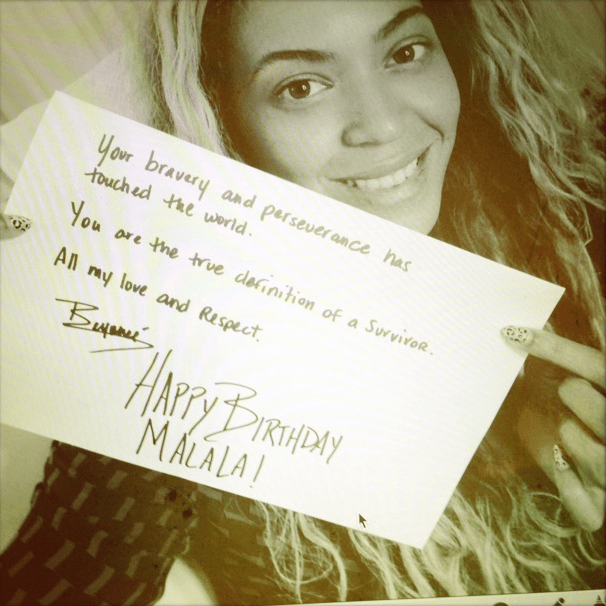 Your bravery and perseverance has
touched the world.
You are the true definition of a Survivor.
All my love and Respect.
Beyoncé
HAPPY BIRTHDAY
MALALA!